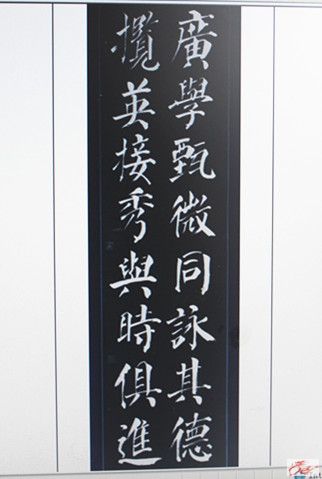 廣學甄微同詠其德
攬英接秀與時俱進